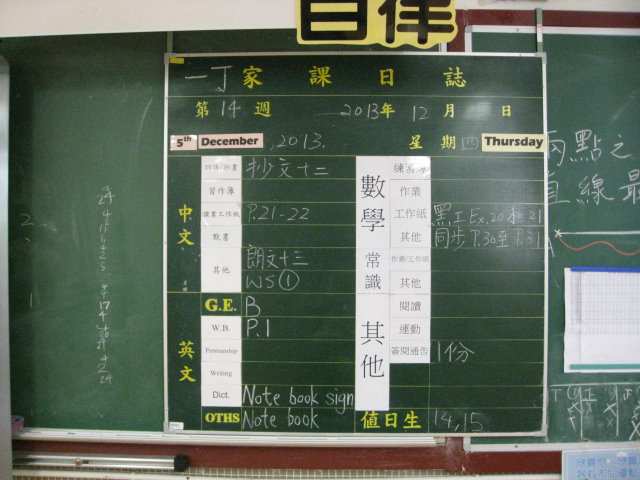 自律
一丁家課日誌
第14週 2013年12月 日
5th December, 2013. 星期四 Thursday
中文
抄文十三
習作簿
課業工作紙 P.21-22
默書
其他 朗文十三
WS①
英文
G.E. B
W.B. P.1
Penmanship
Writing
Dict. Note book sign
OTHS Note book
數學
作業
工作紙 黑工Ex.20和21
其他 同步P.30至P.31
常識
作業/工作紙
其他
其他
閱讀
運動
簽閱通告 1份
值日生 14,15
兩點之
直線最
A